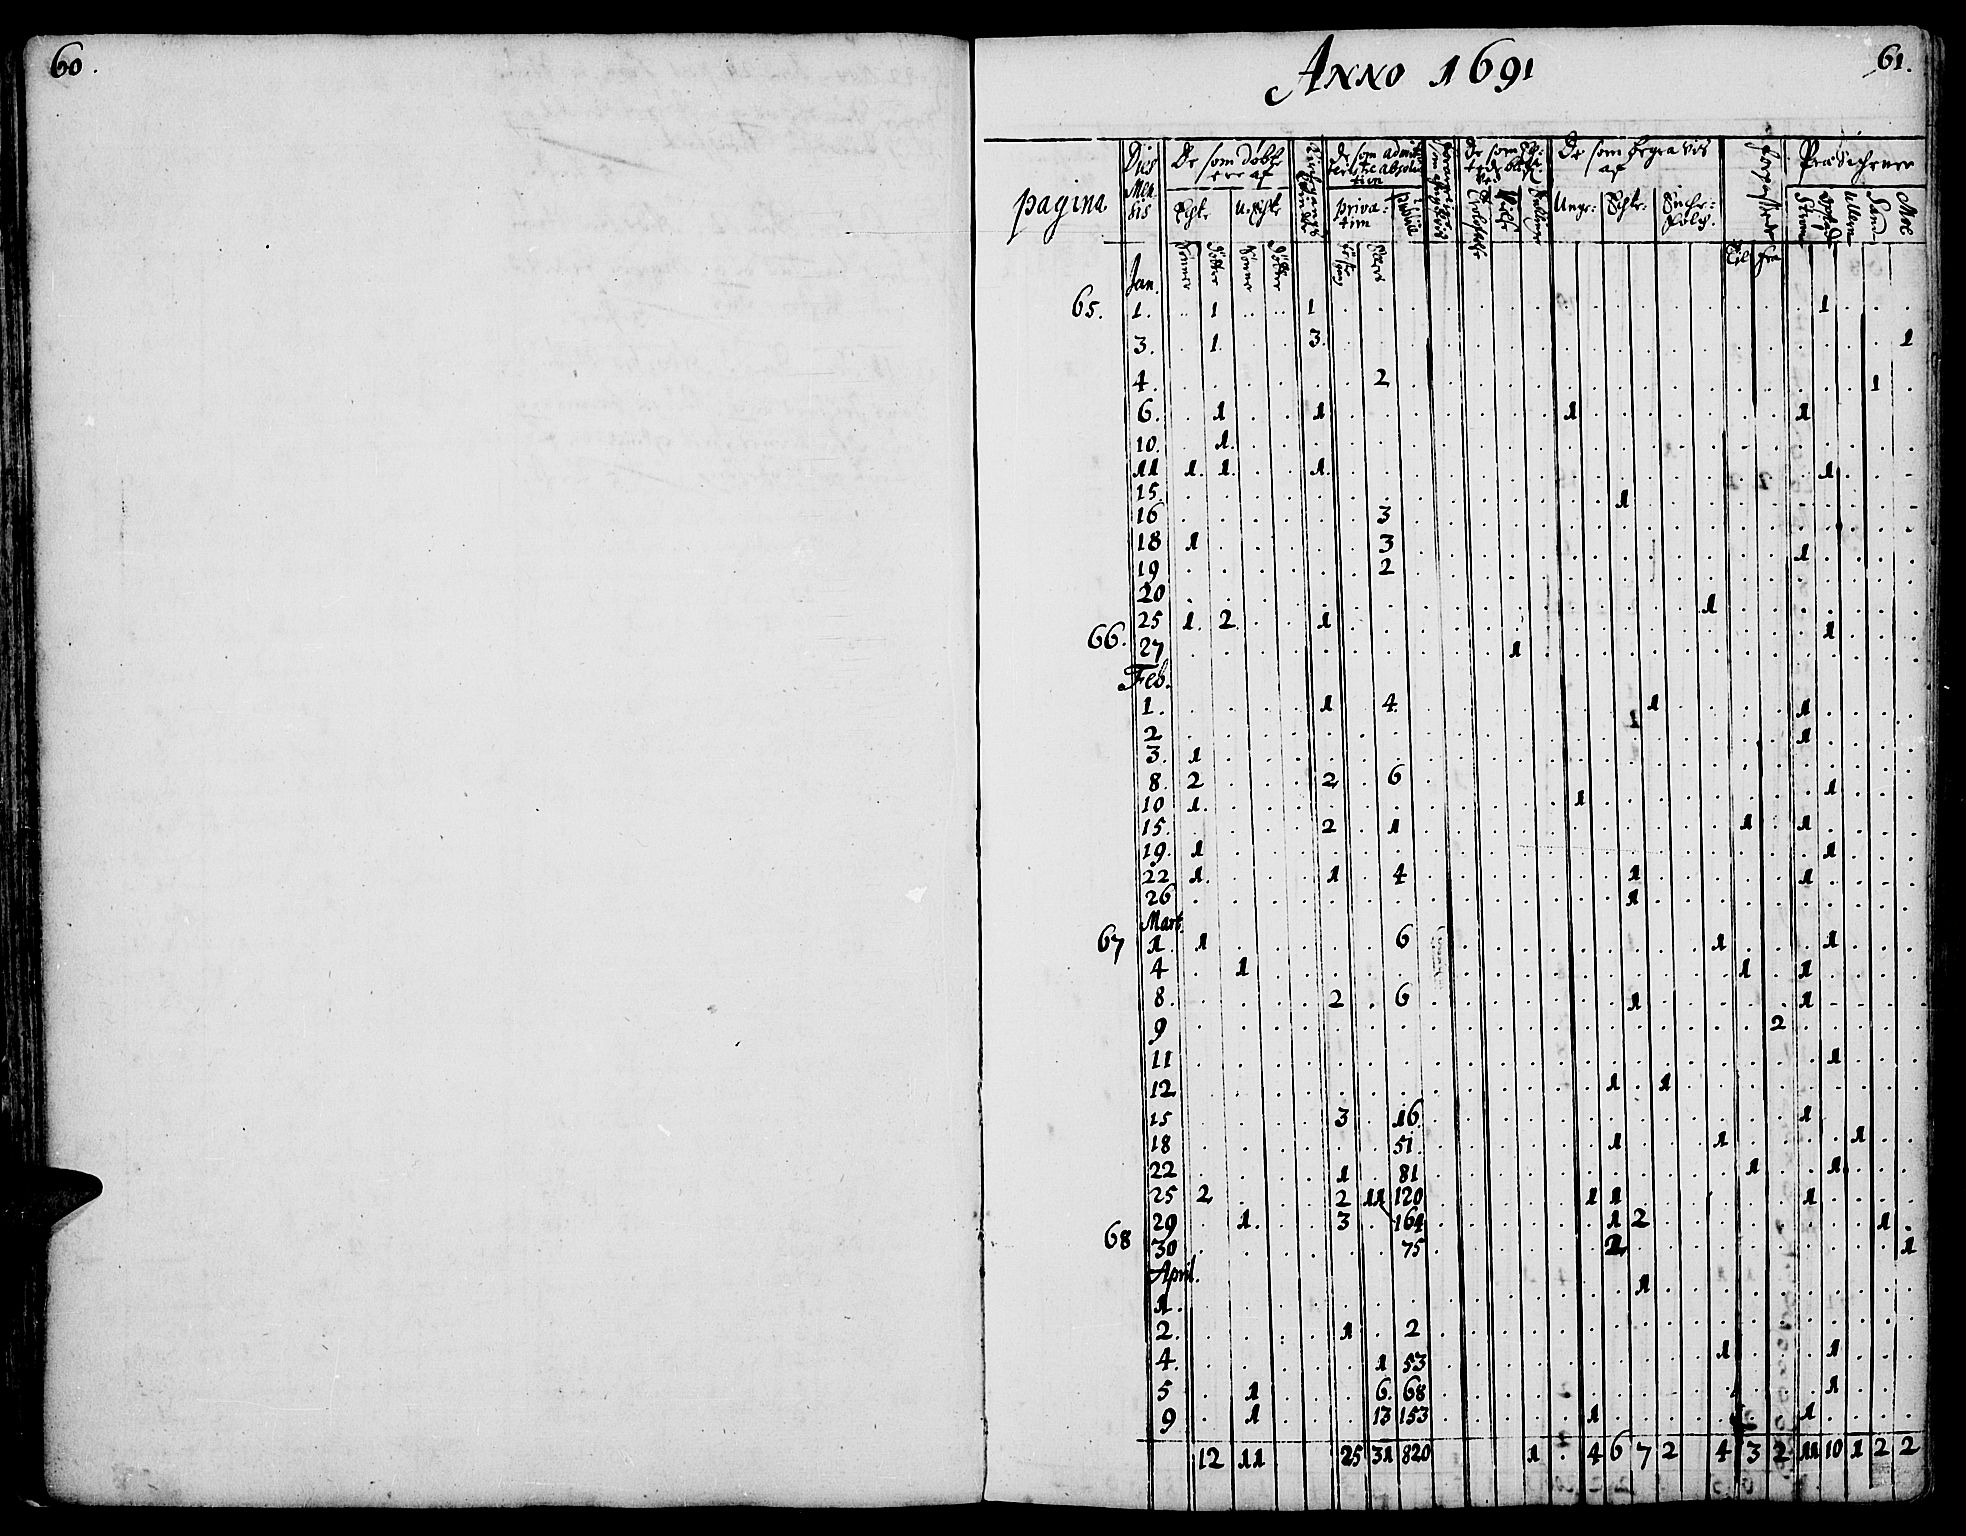 60.
61.
ANNO 1691
pagina
Dies Mensis
De som døbte ere af
De som admitteris te absolution
De som begravis af
Præd
Echte
U.Echte
privatim
Unge:
Echte:
Sønner
Døttre
Sønner
Døttre
Til
fra
Jan.
65. 1. 1 1 1
3. 1 3 1
4. 2 1
6. 1 1 1 1
10. 1
11 1 1 1 1
15. 1
16 3
18 1 3 1
19 2
20 1
66. 25 1 2 1 1
27 1
Feb.
1. 1 4 1 1 1
2 1
3. 1
8. 2 2 6 1
10 1 1
15. 2 1 1 1
19. 1 1
22 1 1 4 1 1
26 1
Mart.
67 1. 1 6 1 1
4 1 1 1
8. 2 6 1 1
9 2
11 1
12 1 1
15 3 16 1
18 51 1 1 1
22 1 81 1 1
25 2 2 11 120 1 1 1
68 29 1 3 164 1 2 1
30 75 2 1
April.
1. 1
2. 1 2
4. 1 53 1 1
5 1 6 68 1
9 1 13 153 1 1
12 11 25 31 820 1 4 6 7 2 4 3 2 11 10 1 2 2